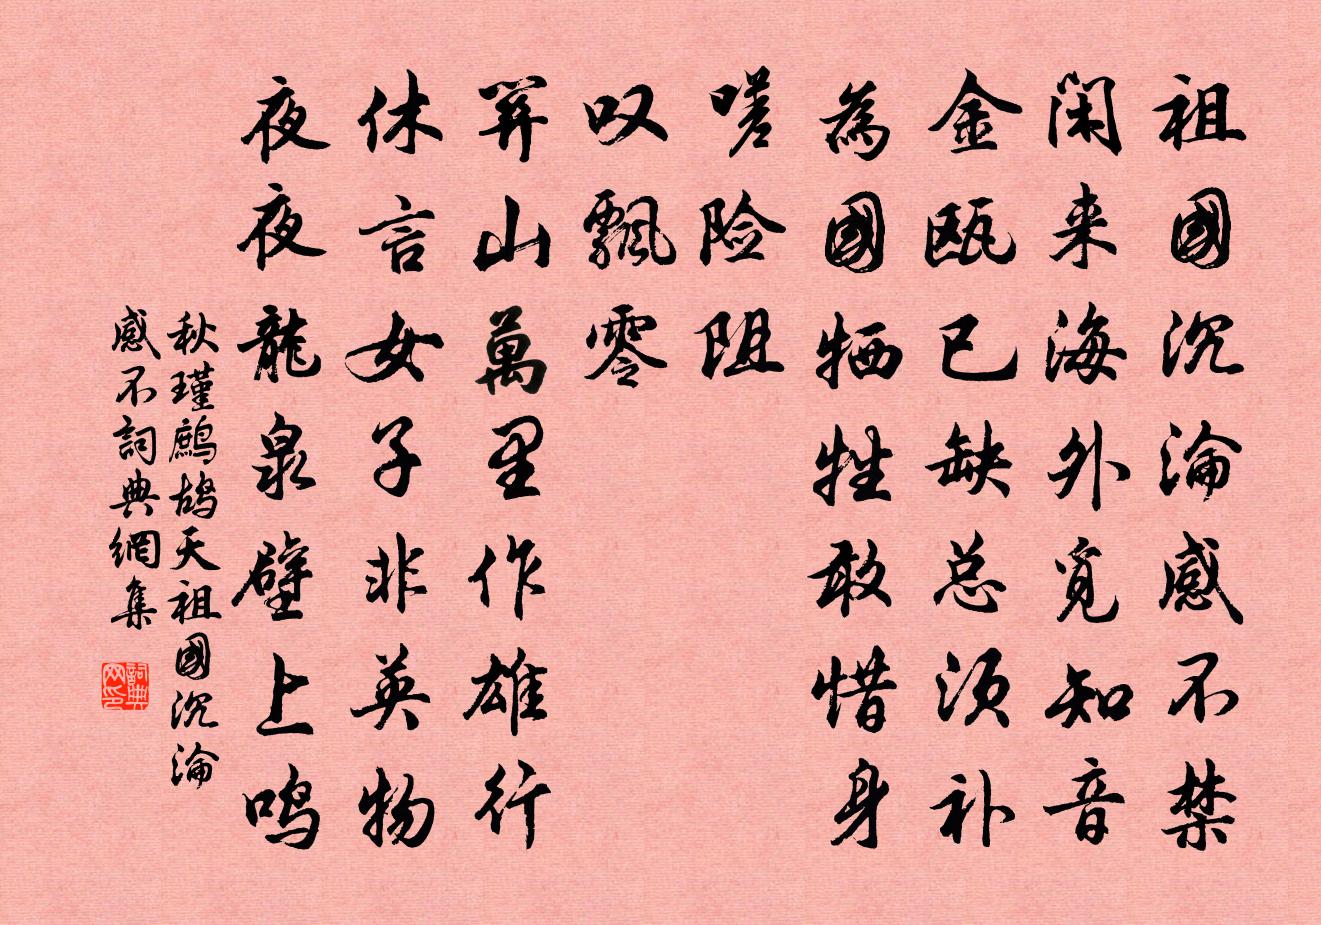 祖國沉淪感不禁
闲来海外觅知音
金瓯已缺总须补
為國牺牲敢惜身
嗟险阻
叹飘零
關山萬里作雄行
休言女子非英物
夜夜龍泉壁上鸣
秋瑾鹧鸪天祖國沉淪
感不詞典網集
詞典网印